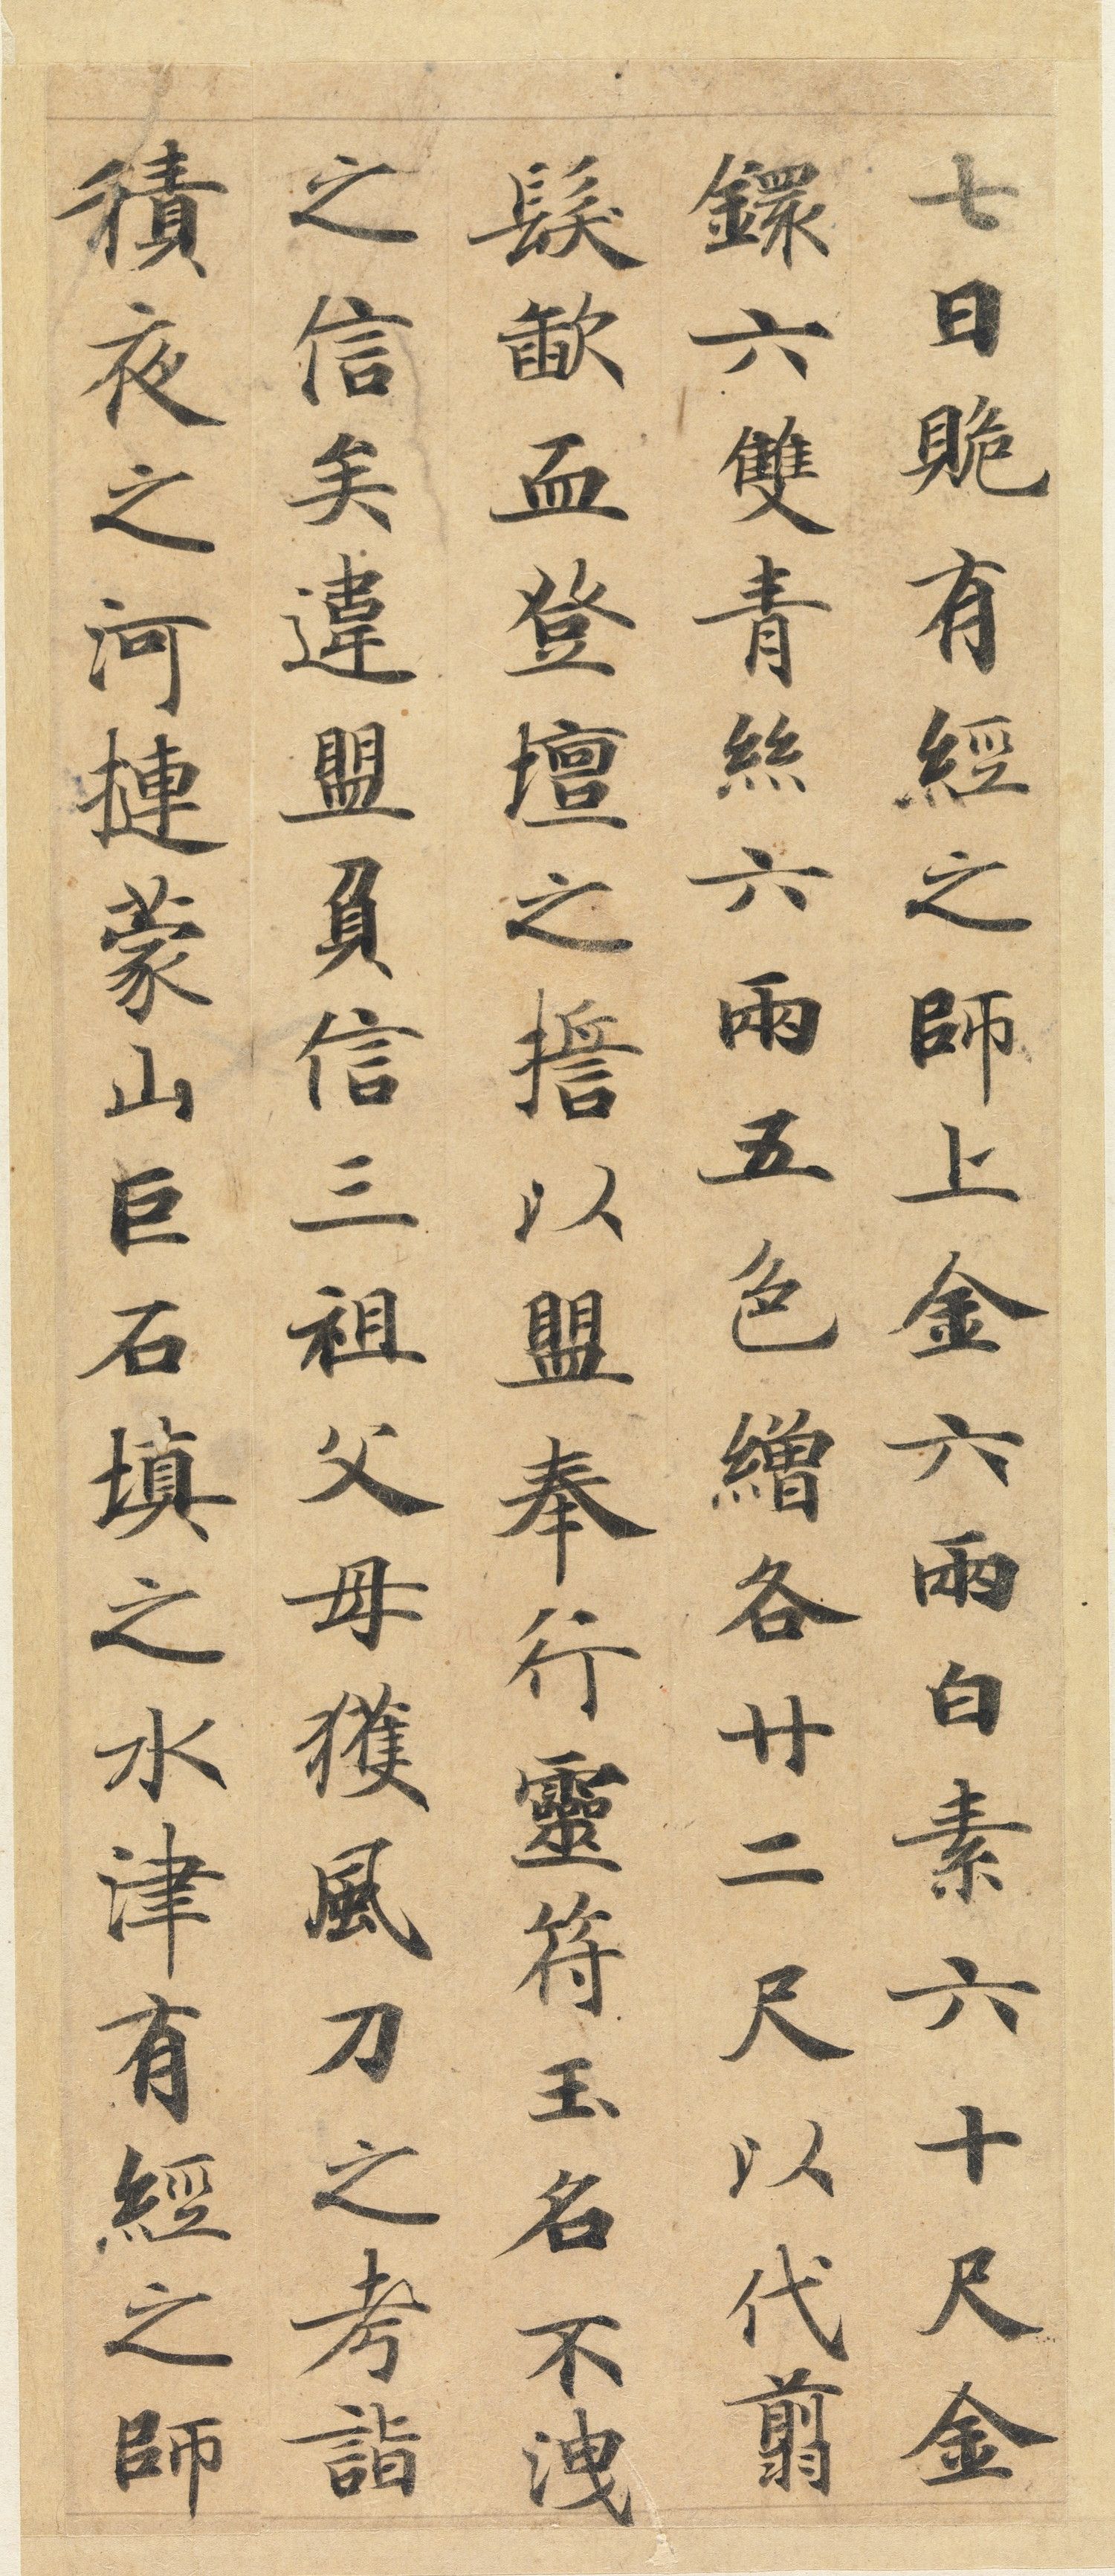 七日貤有經之師上金六兩白素六十尺金
鐶六雙青絲六兩五色繒各廿二尺以代翦
髮歃血登壇之擔以盟奉行靈符玉名不洩
之信矣違盟負信三祖父母獲風刀之考詣
積夜之河摙蒙山巨石填之水津有經之師